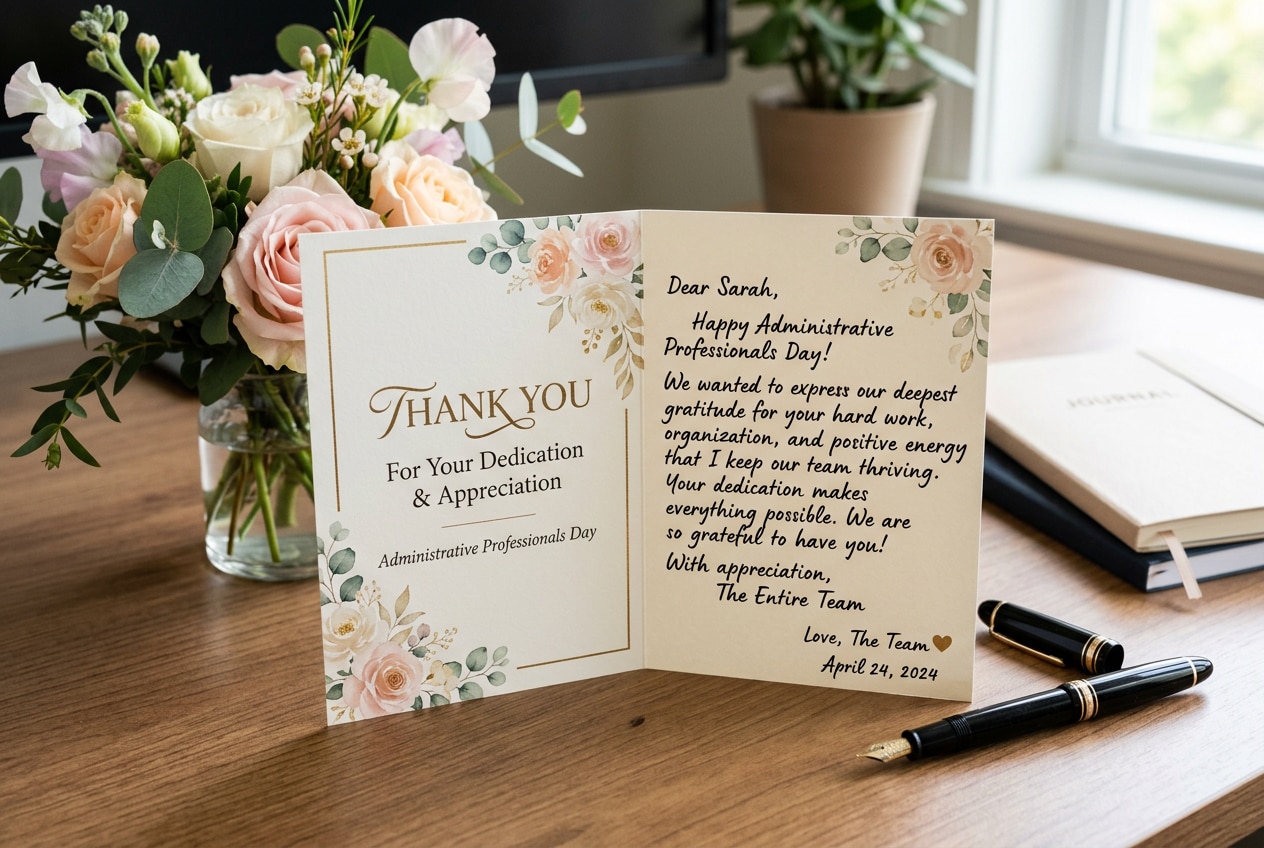 THANK YOU
For Your Dedication
& Appreciation
Administrative Professionals Day
Dear Sarah,
Happy Administrative
Professionals Day!
We wanted to express our deepest
gratitude for your hard work,
organization, and positive energy
that I keep our team thriving.
Your dedication makes
everything possible. We are
so grateful to have you!
With appreciation,
The Entire Team
Love, The Team
April 24, 2024
JOURNAL